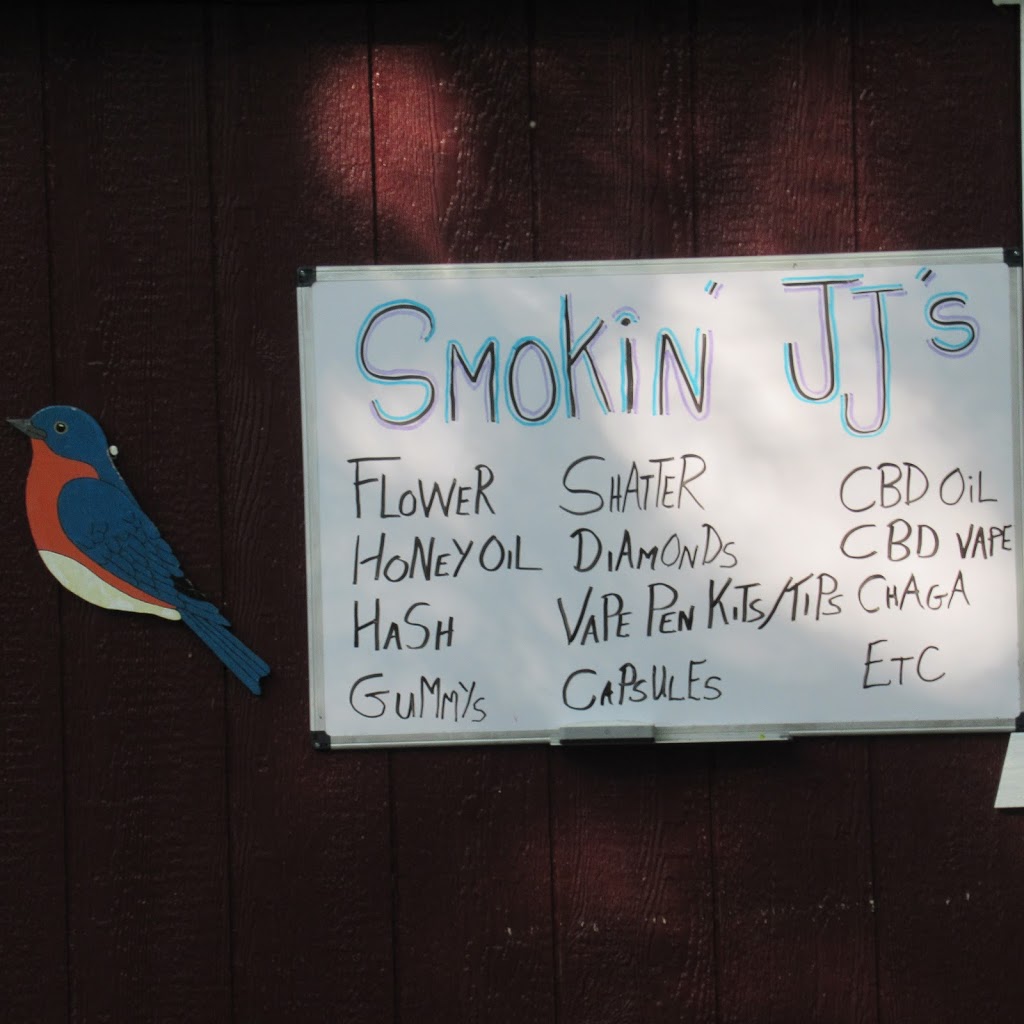 SMOKiN' JJ's
FLOWER
HONEY OIL
HASH
GUMMYS
SHATTER
DiAMONDS
VAPE PEN KiTS/TiPS
CAPSULES
CBD OiL
CBD VAPE
CHAGA
ETC